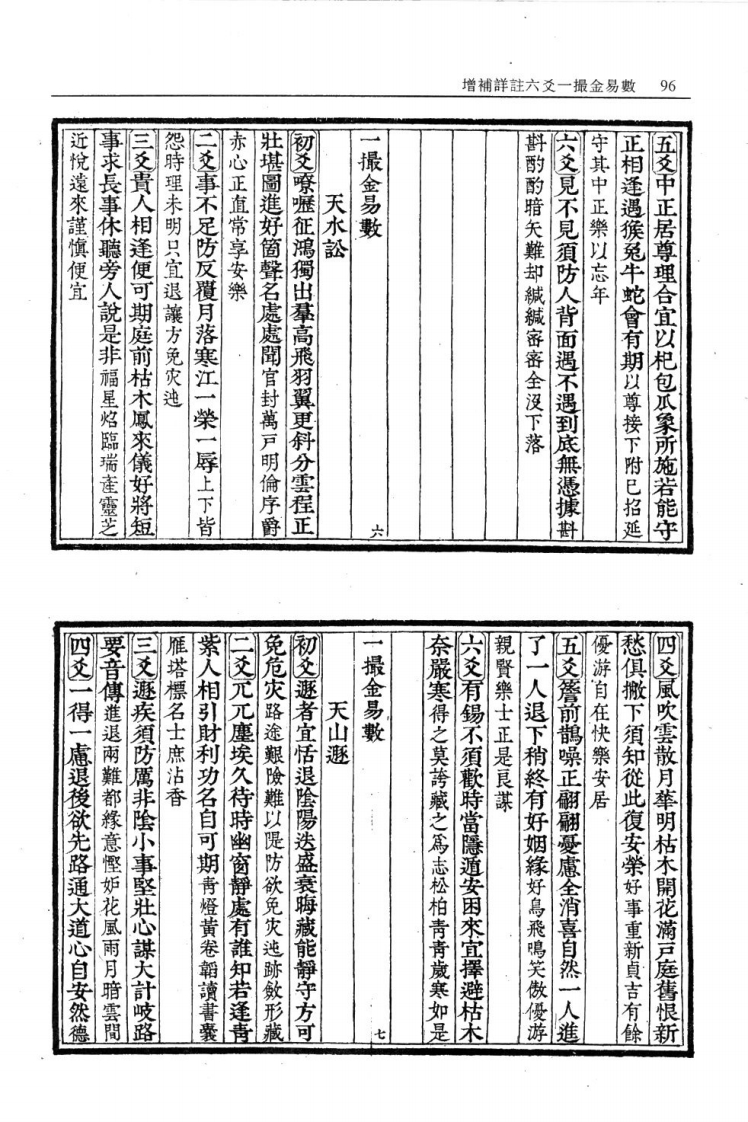 增補詳註六爻一撮金易數 96
五爻中正居尊理合宜以杞包瓜象所施若能守
正相逢遇猴兔牛蛇會有期以尊接下附已招延
守其中正樂以忘年
六爻見不見須防人背面遇不遇到底無憑據斟
斟酌酌暗矢難却緘緘密密全沒下落
一撮金易數 六
天水訟
初爻嘹嚦征鴻獨出羣高飛羽翼更斜分雲程正
壯堪圖進好箇聲名處處聞官封萬戸明倫序爵
赤心正直常享安樂
二爻事不足防反覆月落寒江一榮一辱上下皆
怨時理未明只宜退讓方免灾迍
三爻貴人相逢便可期庭前枯木鳳來儀好將短
事求長事休聽旁人說是非福星炤臨瑞產靈芝
近悅遠來謹慎便宜
四爻風吹雲散月華明枯木開花滿戸庭舊恨新
愁俱撇下須知從此復安榮好事重新貞吉有餘
優游自在快樂安居
五爻簷前鵲噪正翩翩憂慮全消喜自然一人進
了一人退下稍終有好姻緣好鳥飛鳴笑傲優游
親賢樂士正是良謀
六爻有錫不須歡時當隱遁安困來宜擇避枯木
奈嚴寒得之莫誇藏之爲志松柏青青歲寒如是
一撮金易數 七
天山遯
初爻遯者宜恬退陰陽迭盛衰晦藏能靜守方可
免危灾路途艱險難以隄防欲免灾迍跡斂形藏
二爻兀兀塵埃久待時幽窗靜處有誰知若逢靑
紫人相引財利功名自可期青燈黃卷韜讀書囊
雁塔標名士庶沾香
三爻遯疾須防厲非陰小事堅壯心謀大計岐路
要音傳進退兩難都緣意慳妒花風雨月暗雲間
四爻一得一慮退後欲先路通大道心自安然德